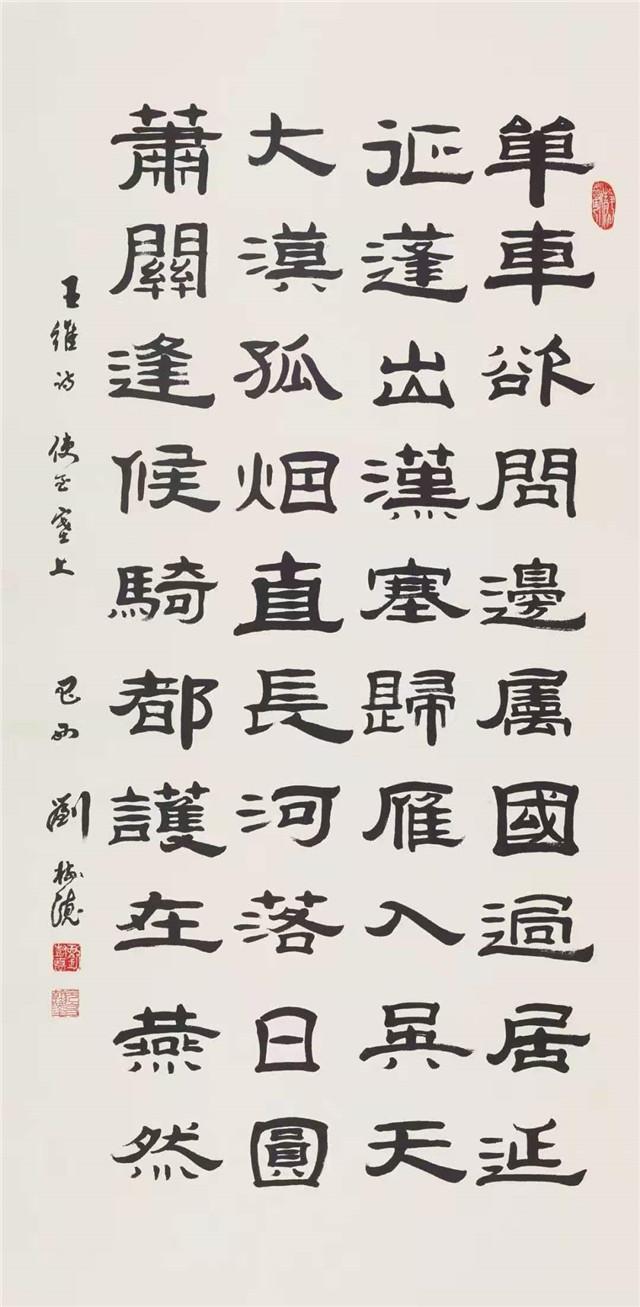 单車欲問邊屬國過居延
征蓬出漢塞歸雁入吳天
大漠孤烟直長河落日圓
蕭關逢候騎都護在燕然
王維诗 使至塞上 劉